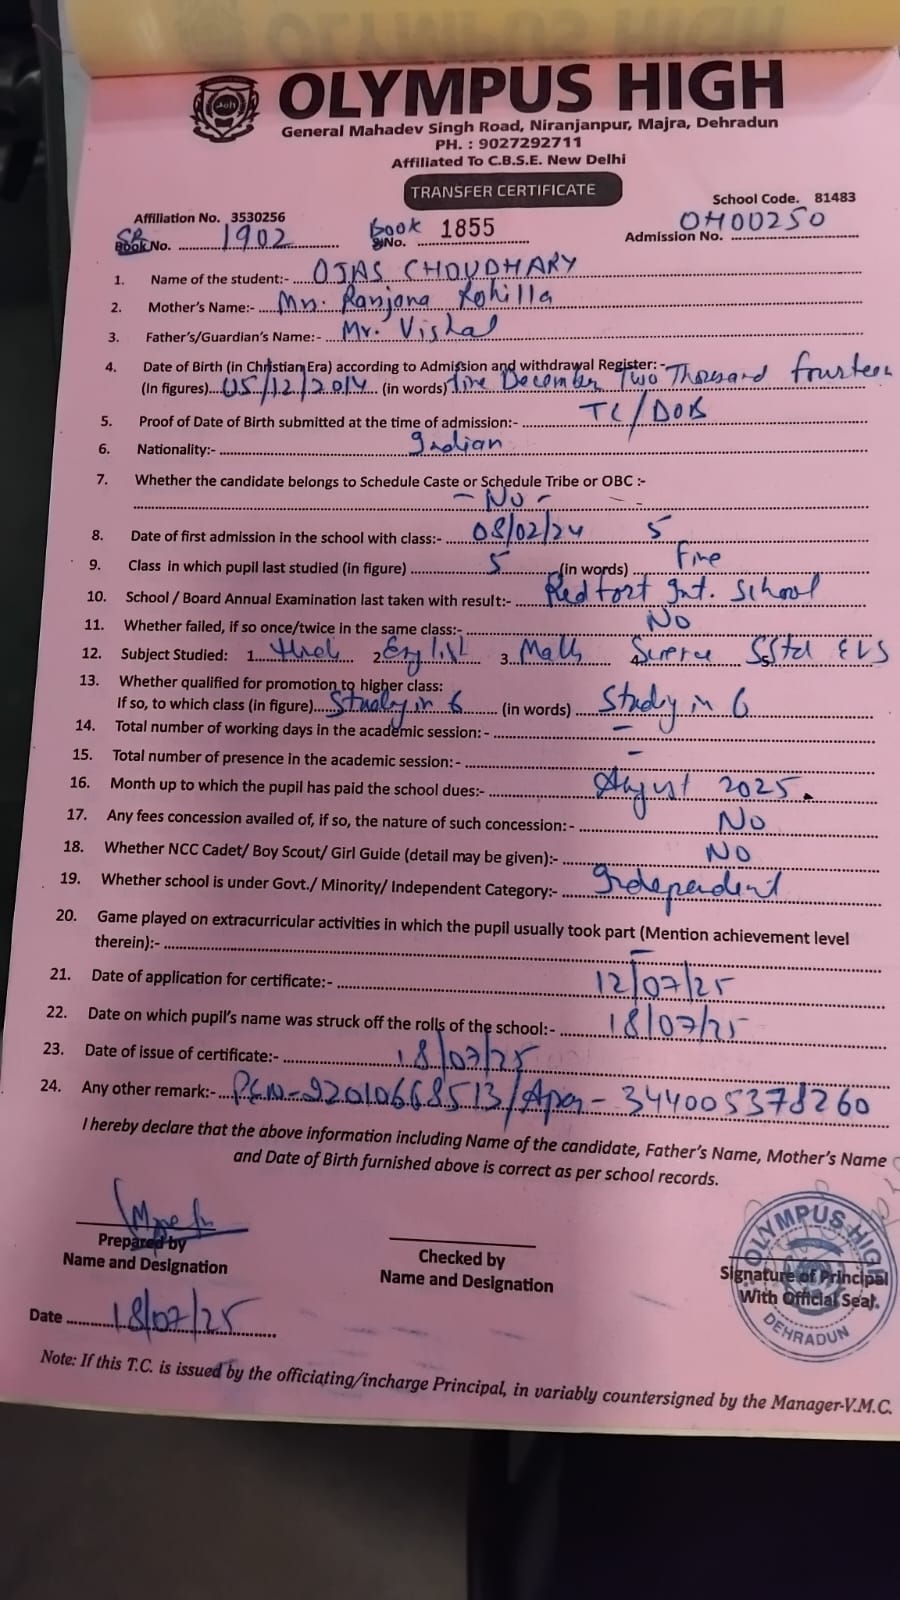 OLYMPUS HIGH
General Mahadev Singh Road, Niranjanpur, Majra, Dehradun
PH. : 9027292711
Affiliated To C.B.S.E. New Delhi
TRANSFER CERTIFICATE
Affiliation No. 3530256 School Code. 81483
SR Book No. 1902 Book SNo. 1855 Admission No. OH00250
1. Name of the student:- OJAS CHOUDHARY
2. Mother's Name:- Mrs. Ranjana Rohilla
3. Father's/Guardian's Name:- Mr. Vishal
4. Date of Birth (in Christian Era) according to Admission and withdrawal Register: -
(In figures) 05/12/2014 (in words) five December Two Thousand fourteen
5. Proof of Date of Birth submitted at the time of admission:- TC/DOB
6. Nationality:- Indian
7. Whether the candidate belongs to Schedule Caste or Schedule Tribe or OBC :-
- No -
8. Date of first admission in the school with class:- 08/02/24 5
9. Class in which pupil last studied (in figure) 5 (in words) Five
10. School / Board Annual Examination last taken with result:- Redfort Int. School
11. Whether failed, if so once/twice in the same class:- No
12. Subject Studied: 1. Hindi 2. English 3. Math 4. Science 5. SStd EVS
13. Whether qualified for promotion to higher class:
If so, to which class (in figure) Study in 6 (in words) Study in 6
14. Total number of working days in the academic session: - -
15. Total number of presence in the academic session:- -
16. Month up to which the pupil has paid the school dues:- August 2025.
17. Any fees concession availed of, if so, the nature of such concession:- No
18. Whether NCC Cadet/ Boy Scout/ Girl Guide (detail may be given):- No
19. Whether school is under Govt./ Minority/ Independent Category:- Independent
20. Game played on extracurricular activities in which the pupil usually took part (Mention achievement level
therein):- -
21. Date of application for certificate:- 12/07/25
22. Date on which pupil's name was struck off the rolls of the school:- 18/07/25
23. Date of issue of certificate:- 18/07/25
24. Any other remark:- PEN-22010668513/Apar- 344005378260
I hereby declare that the above information including Name of the candidate, Father's Name, Mother's Name
and Date of Birth furnished above is correct as per school records.
Prepared by
Name and Designation
Checked by
Name and Designation
OLYMPUS HIGH
Signature of Principal
With Official Seal.
DEHRADUN
Date 18/07/25
Note: If this T.C. is issued by the officiating/incharge Principal, in variably countersigned by the Manager-V.M.C.